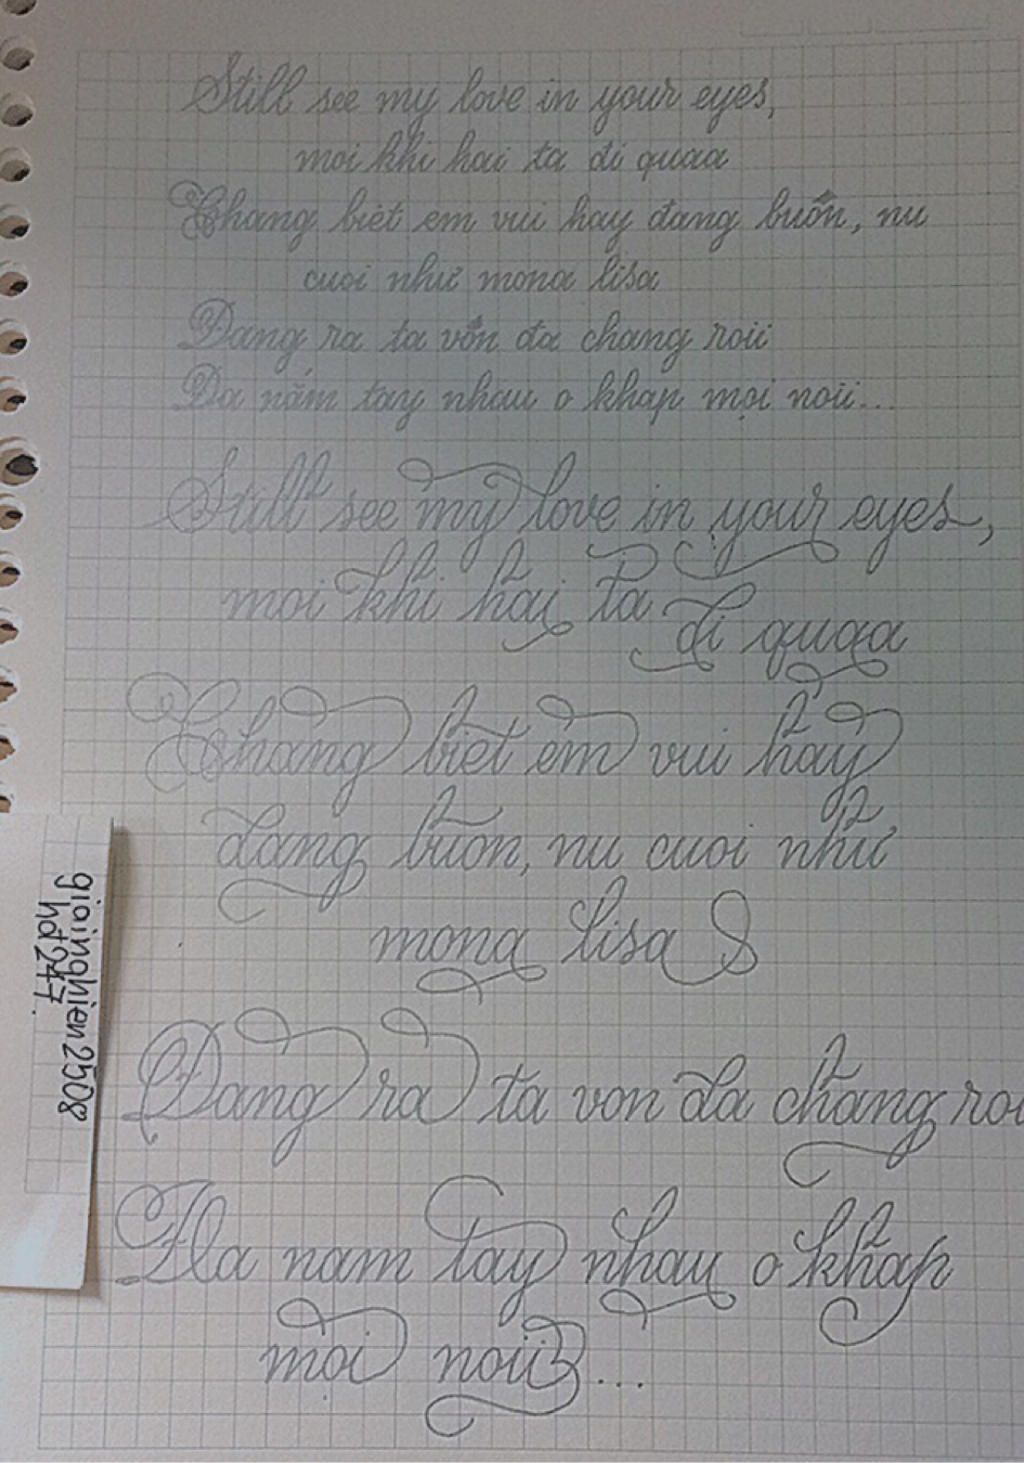 Still see my love in your eyes,
moi khi hai ta đi quaa
Chang biêt em vui hay đang buồn, nu
cuoi như mona lisa
Đang ra ta vốn đa chang roii
Đa nắm tay nhau o khap mọi noii...
Still see my love in your eyes,
moi khi hai ta đi quaa
Chang biet em vui hay
đang buon, nu cuoi như
mona lisa
Đang ra ta von đa chang roi
Đa nam tay nhau o khap
mọi noii...
gioinghien2508
hd247.